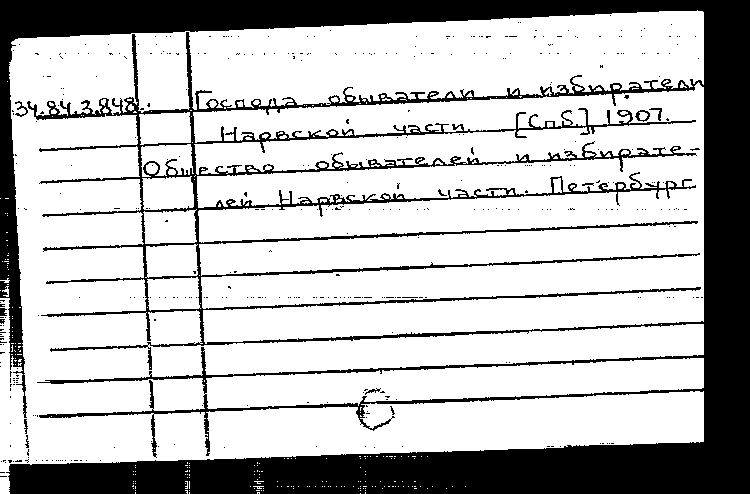 34.84.3.848. Господа обыватели и избиратели
Нарвской части. [СПб], 1907.
Общество обывателей и избирате-
лей Нарвской части. Петербург